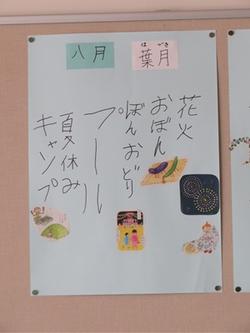 八月
はづき
葉月
花火
おぼん
ぼんおどり
プール
夏休み
キャンプ